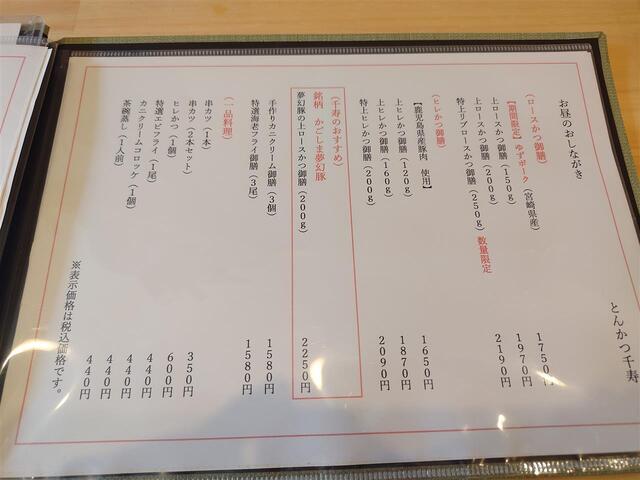 お昼のおしながき
とんかつ千寿
(ロースかつ御膳)
【期間限定】ゆずポーク(宮崎県産)
上ロースかつ御膳(150g) 1750円
上ロースかつ御膳(200g) 1970円
特上リブロースかつ御膳(250g)数量限定 2190円
(ヒレかつ御膳)
【鹿児島県産豚肉 使用】
上ヒレかつ御膳(120g) 1650円
上ヒレかつ御膳(160g) 1870円
特上ヒレかつ御膳(200g) 2090円
(千寿のおすすめ)
銘柄 かごしま夢幻豚
夢幻豚の上ロースかつ御膳(200g) 2250円
手作りカニクリーム御膳(3個) 1580円
特選海老フライ御膳(3尾) 1580円
(一品料理)
串カツ(1本) 350円
串カツ(2本セット) 600円
ヒレかつ(1個) 440円
特選エビフライ(1尾) 440円
カニクリームコロッケ(1個) 440円
茶碗蒸し(1人前) 440円
※表示価格は税込価格です。